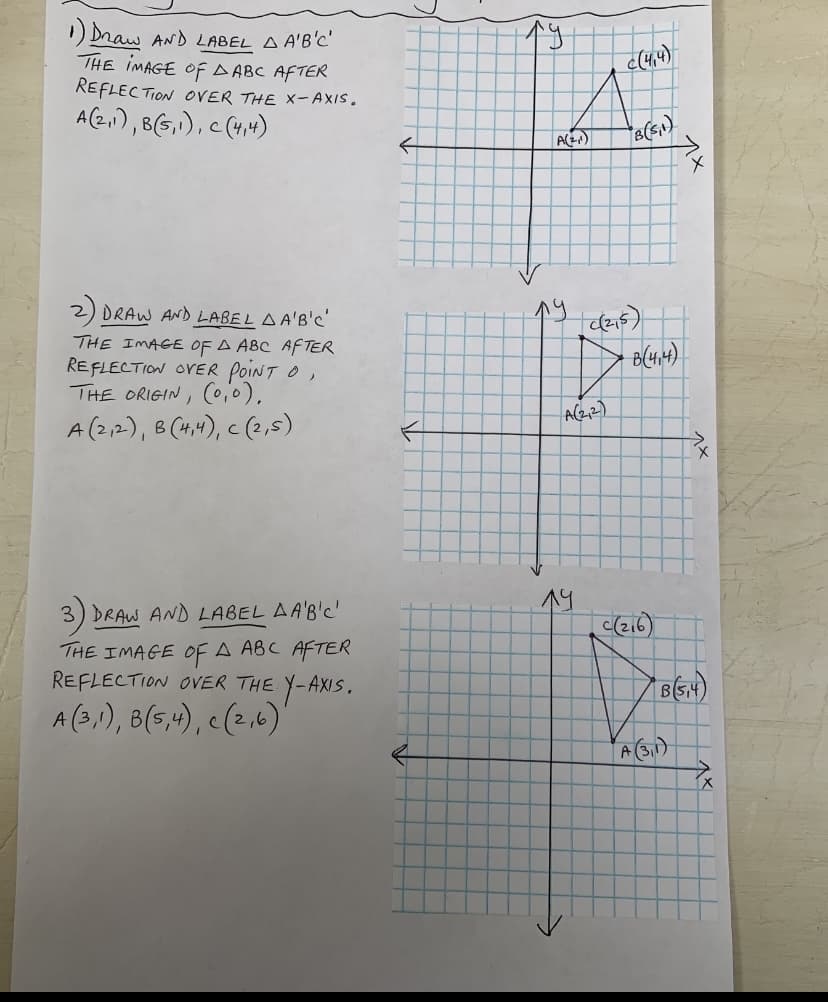 1) Draw AND LABEL △ A'B'C'
THE IMAGE OF △ ABC AFTER
REFLECTION OVER THE X-AXIS.
A(2,1), B(5,1), C(4,4)
y
C(4,4)
A(2,1)
B(5,1)
X
2) DRAW AND LABEL △ A'B'C'
THE IMAGE OF △ ABC AFTER
REFLECTION OVER POINT O,
THE ORIGIN, (0,0).
A(2,2), B(4,4), C(2,5)
y
C(2,5)
B(4,4)
A(2,2)
X
3) DRAW AND LABEL △ A'B'C'
THE IMAGE OF △ ABC AFTER
REFLECTION OVER THE Y-AXIS.
A(3,1), B(5,4), C(2,6)
y
C(2,6)
B(5,4)
A(3,1)
X